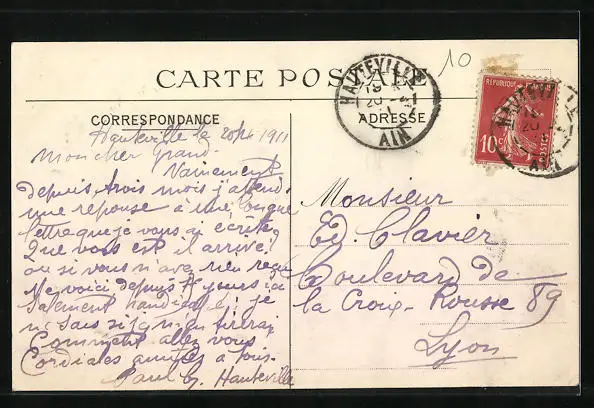 10
CARTE POSTALE
HAUTEVILLE
AIN
REPUBLIQUE
10c
POSTES
HAUTEVILLE
AIN
CORRESPONDANCE
ADRESSE
Hauteville le 20/4 1911
Mon cher Grand.
Vainement
depuis trois mois j'attend
une réponse à une longue
lettre que je vous ai écrite,
Que vous est il arrivé
ou si vous n'avez rien reçu
Me voici depuis jours ici
salement handicapé; je
ne sais si j'y m'en tirerai
Comment allez vous
Cordiales amitiés à tous.
Paul Hauteville
Monsieur
Ed. Clavier
Boulevard de
la Croix-Rousse 89
Lyon